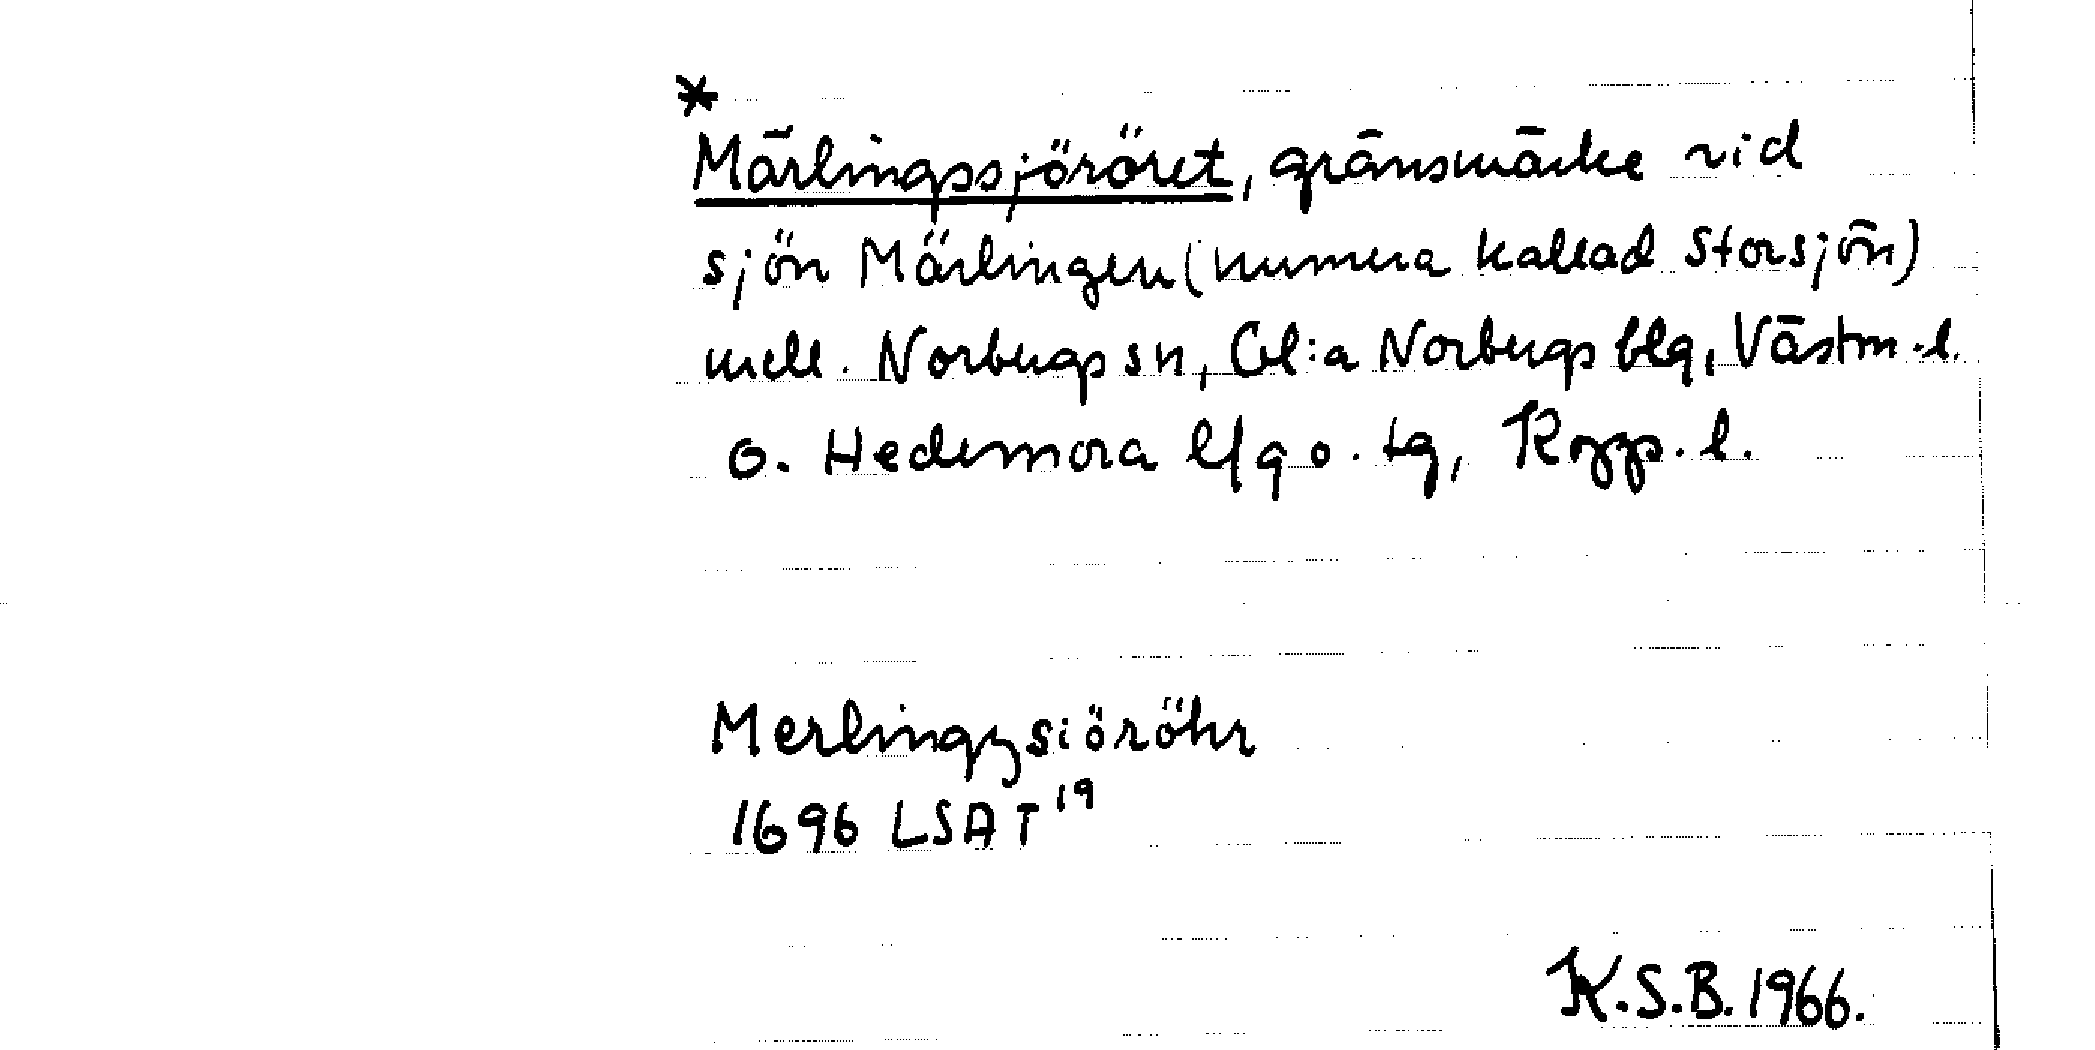 *
Märlingssjöröret, gränsmärke vid
sjön Märlingen (numera kallad Storsjön)
mell. Norbergs sn, Gl:a Norbergs blg, Västm.l.
o. Hedemora lfg o. tg, Kopp. l.
Merlingzsiöröhr
1696 LSA T 19
K.S.B. 1966.